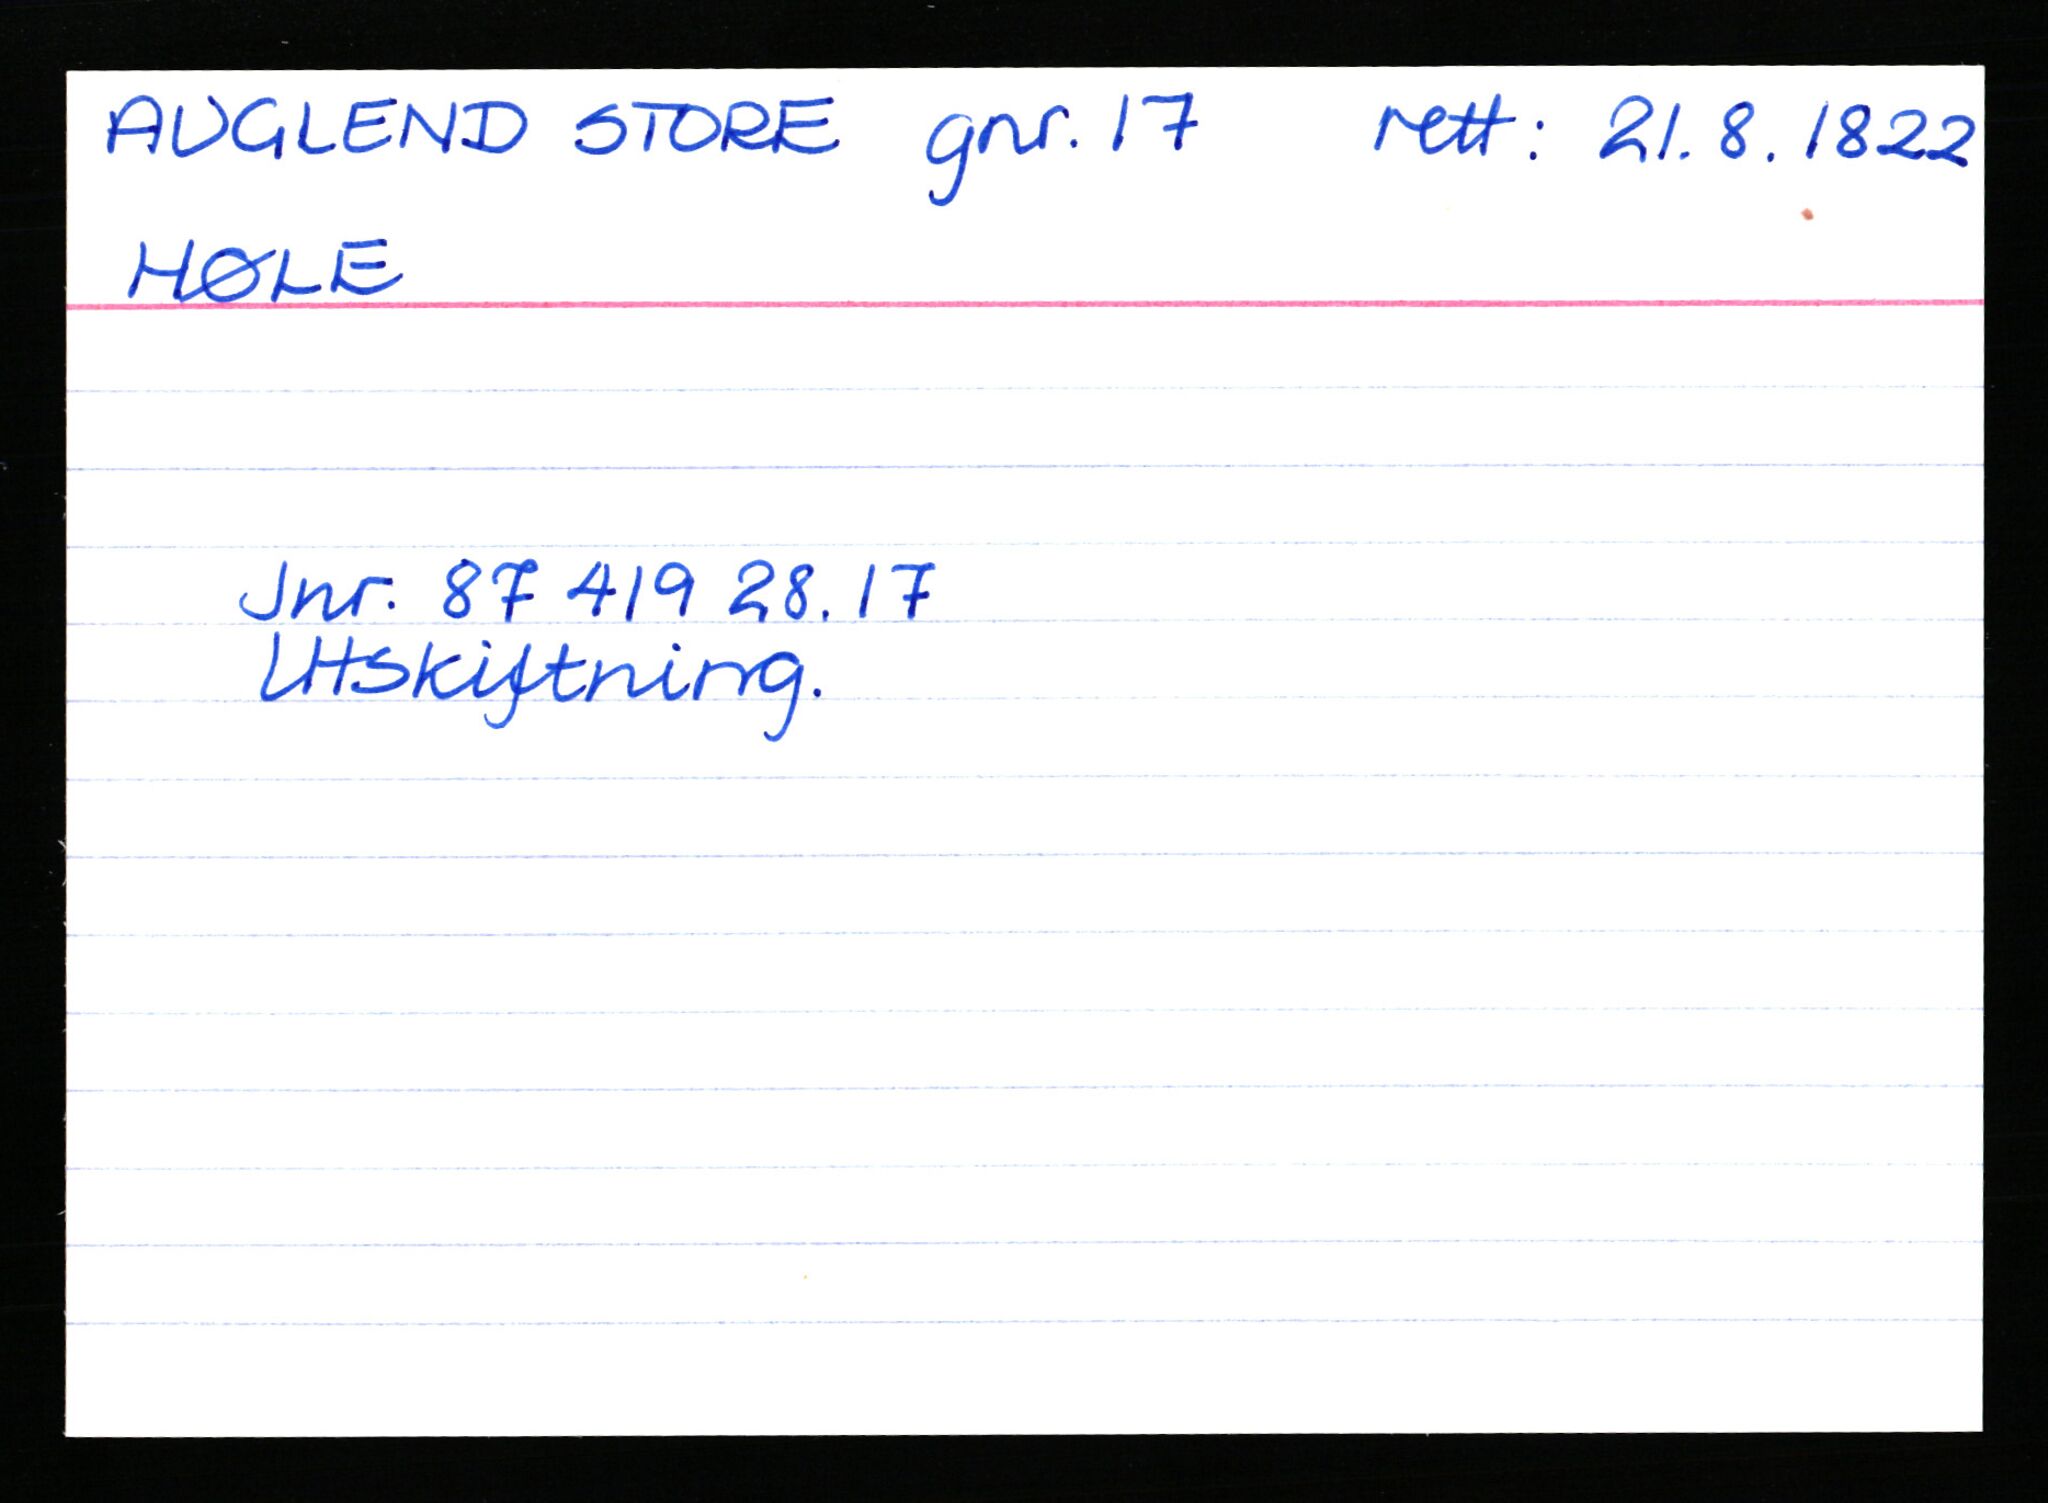 AUGLEND STORE gnr. 17 rett: 21.8.1822
HØLE
Jnr. 87 419 28.17
Utskiftning.